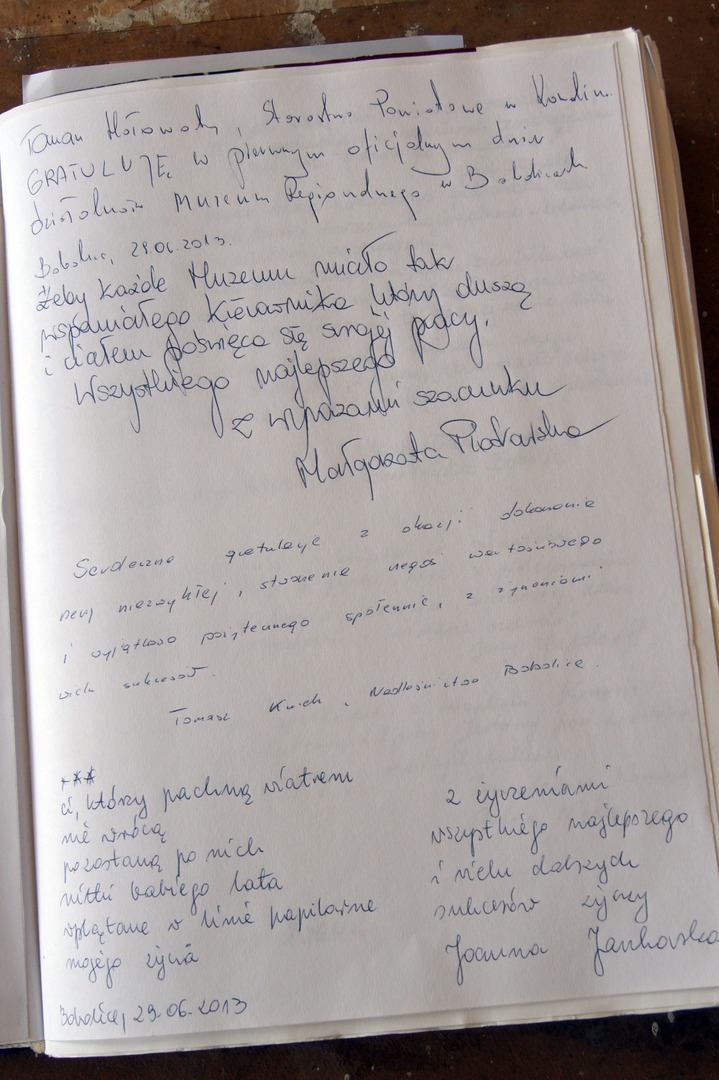 Roman Hołowaty, Starostwo Powiatowe w Koszalin.
GRATULUJĘ, w pierwszym oficjalnym dniu
działalności Muzeum Regionalnego w Bobolicach
Bobolice, 29.06.2013.
Żeby każde Muzeum miało tak
wspaniałego kierownika który duszą
i ciałem poświęca się swojej pracy.
Wszystkiego najlepszego
z wyrazami szacunku
Małgorzata
Serdecznie gratuluję z okazji dokonania
rzeczy niezwykłej, stworzenia czegoś wartościowego
i wyjątkowo pożytecznego społecznie, z życzeniami
wielu sukcesów.
Tomasz , Nadleśnictwo Bobolice.
***
ci, którzy pachną wiatrem
nie wrócą
pozostaną po nich
nitki babiego lata
wplątane w linie papilarne
mojego życia
Bobolice, 29.06.2013
z życzeniami
wszystkiego najlepszego
i wielu dalszych
sukcesów życzy
Joanna Jankowska